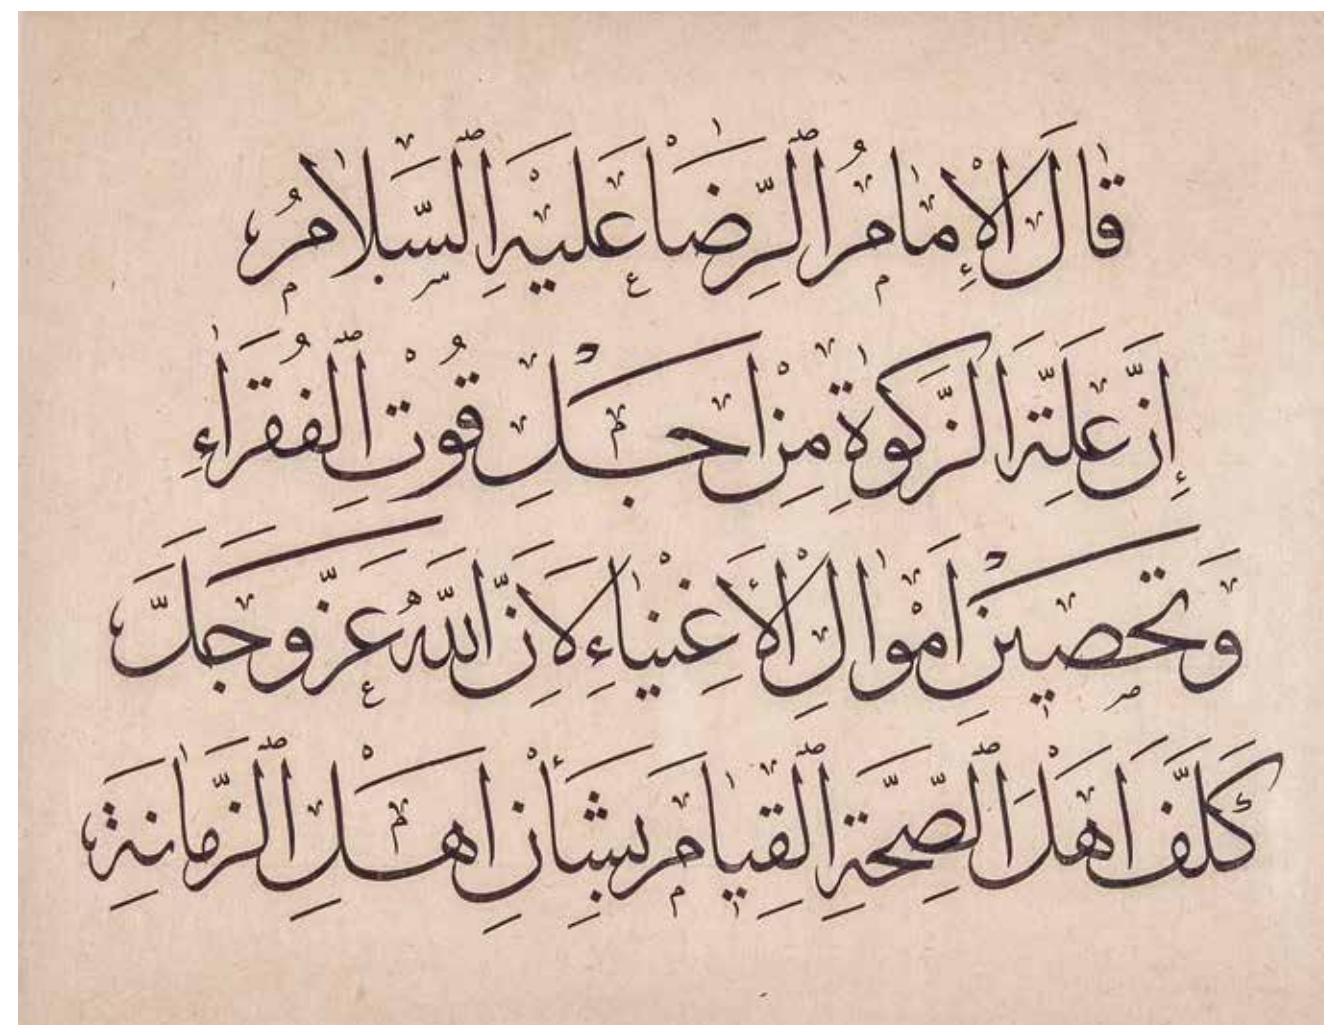 قَالَ الْإِمَامُ الرِّضَا عَلَيْهِ السَّلَامُ
إِنَّ عِلَّةَ الزَّكَوةِ مِنْ اَجْلِ قُوْتِ الْفُقَرَاءِ
وَتَحْصِيْنِ اَمْوَالِ الْأَغْنِيَاءِ لِاَنَّ اللّٰهَ عَزَّ وَجَلَّ
كَلَّفَ اَهْلَ الصِّحَّةِ الْقِيَامَ بِشَأْنِ اَهْلِ الزَّمَانَةِ